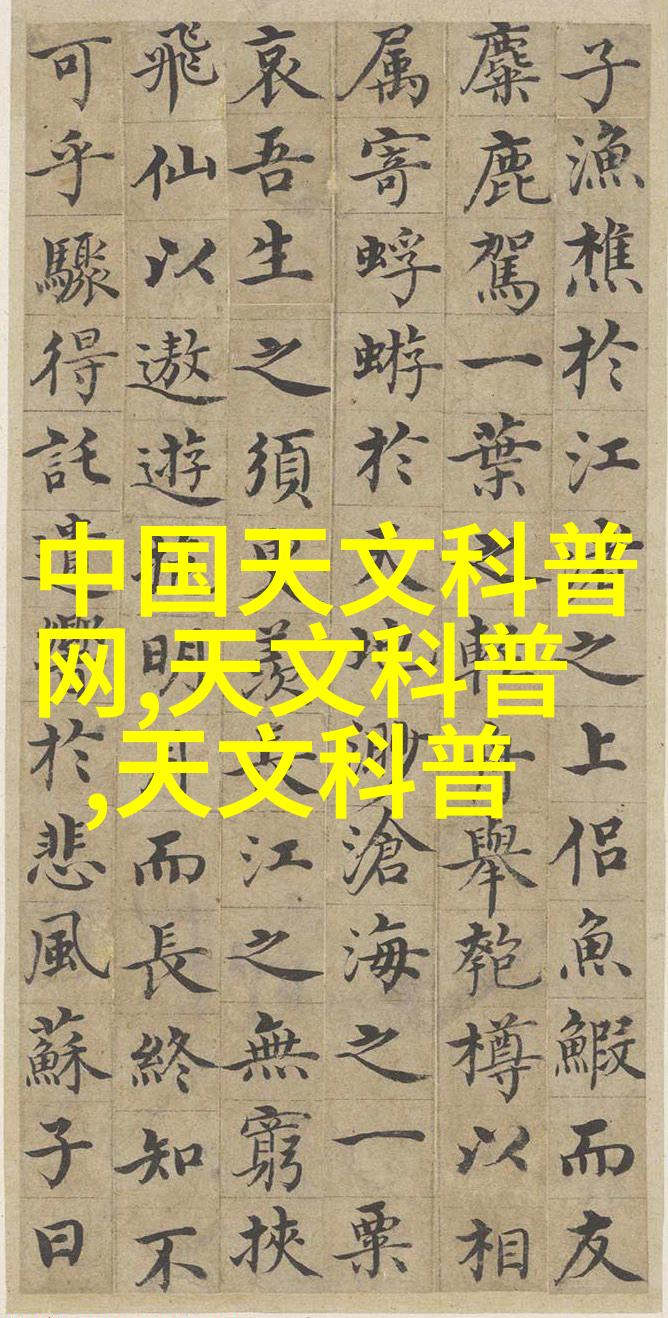 子漁樵於江渚之上侶魚鰕而友
麋鹿駕一葉之輕舟舉匏樽以相
属寄蜉蝣於天地渺滄海之一粟
哀吾生之須臾羨長江之無窮挾
飛仙以遨遊抱明月而長終知不
可乎驟得託遺響於悲風蘇子曰
中国天文科普
网,天文科普
,天文科普